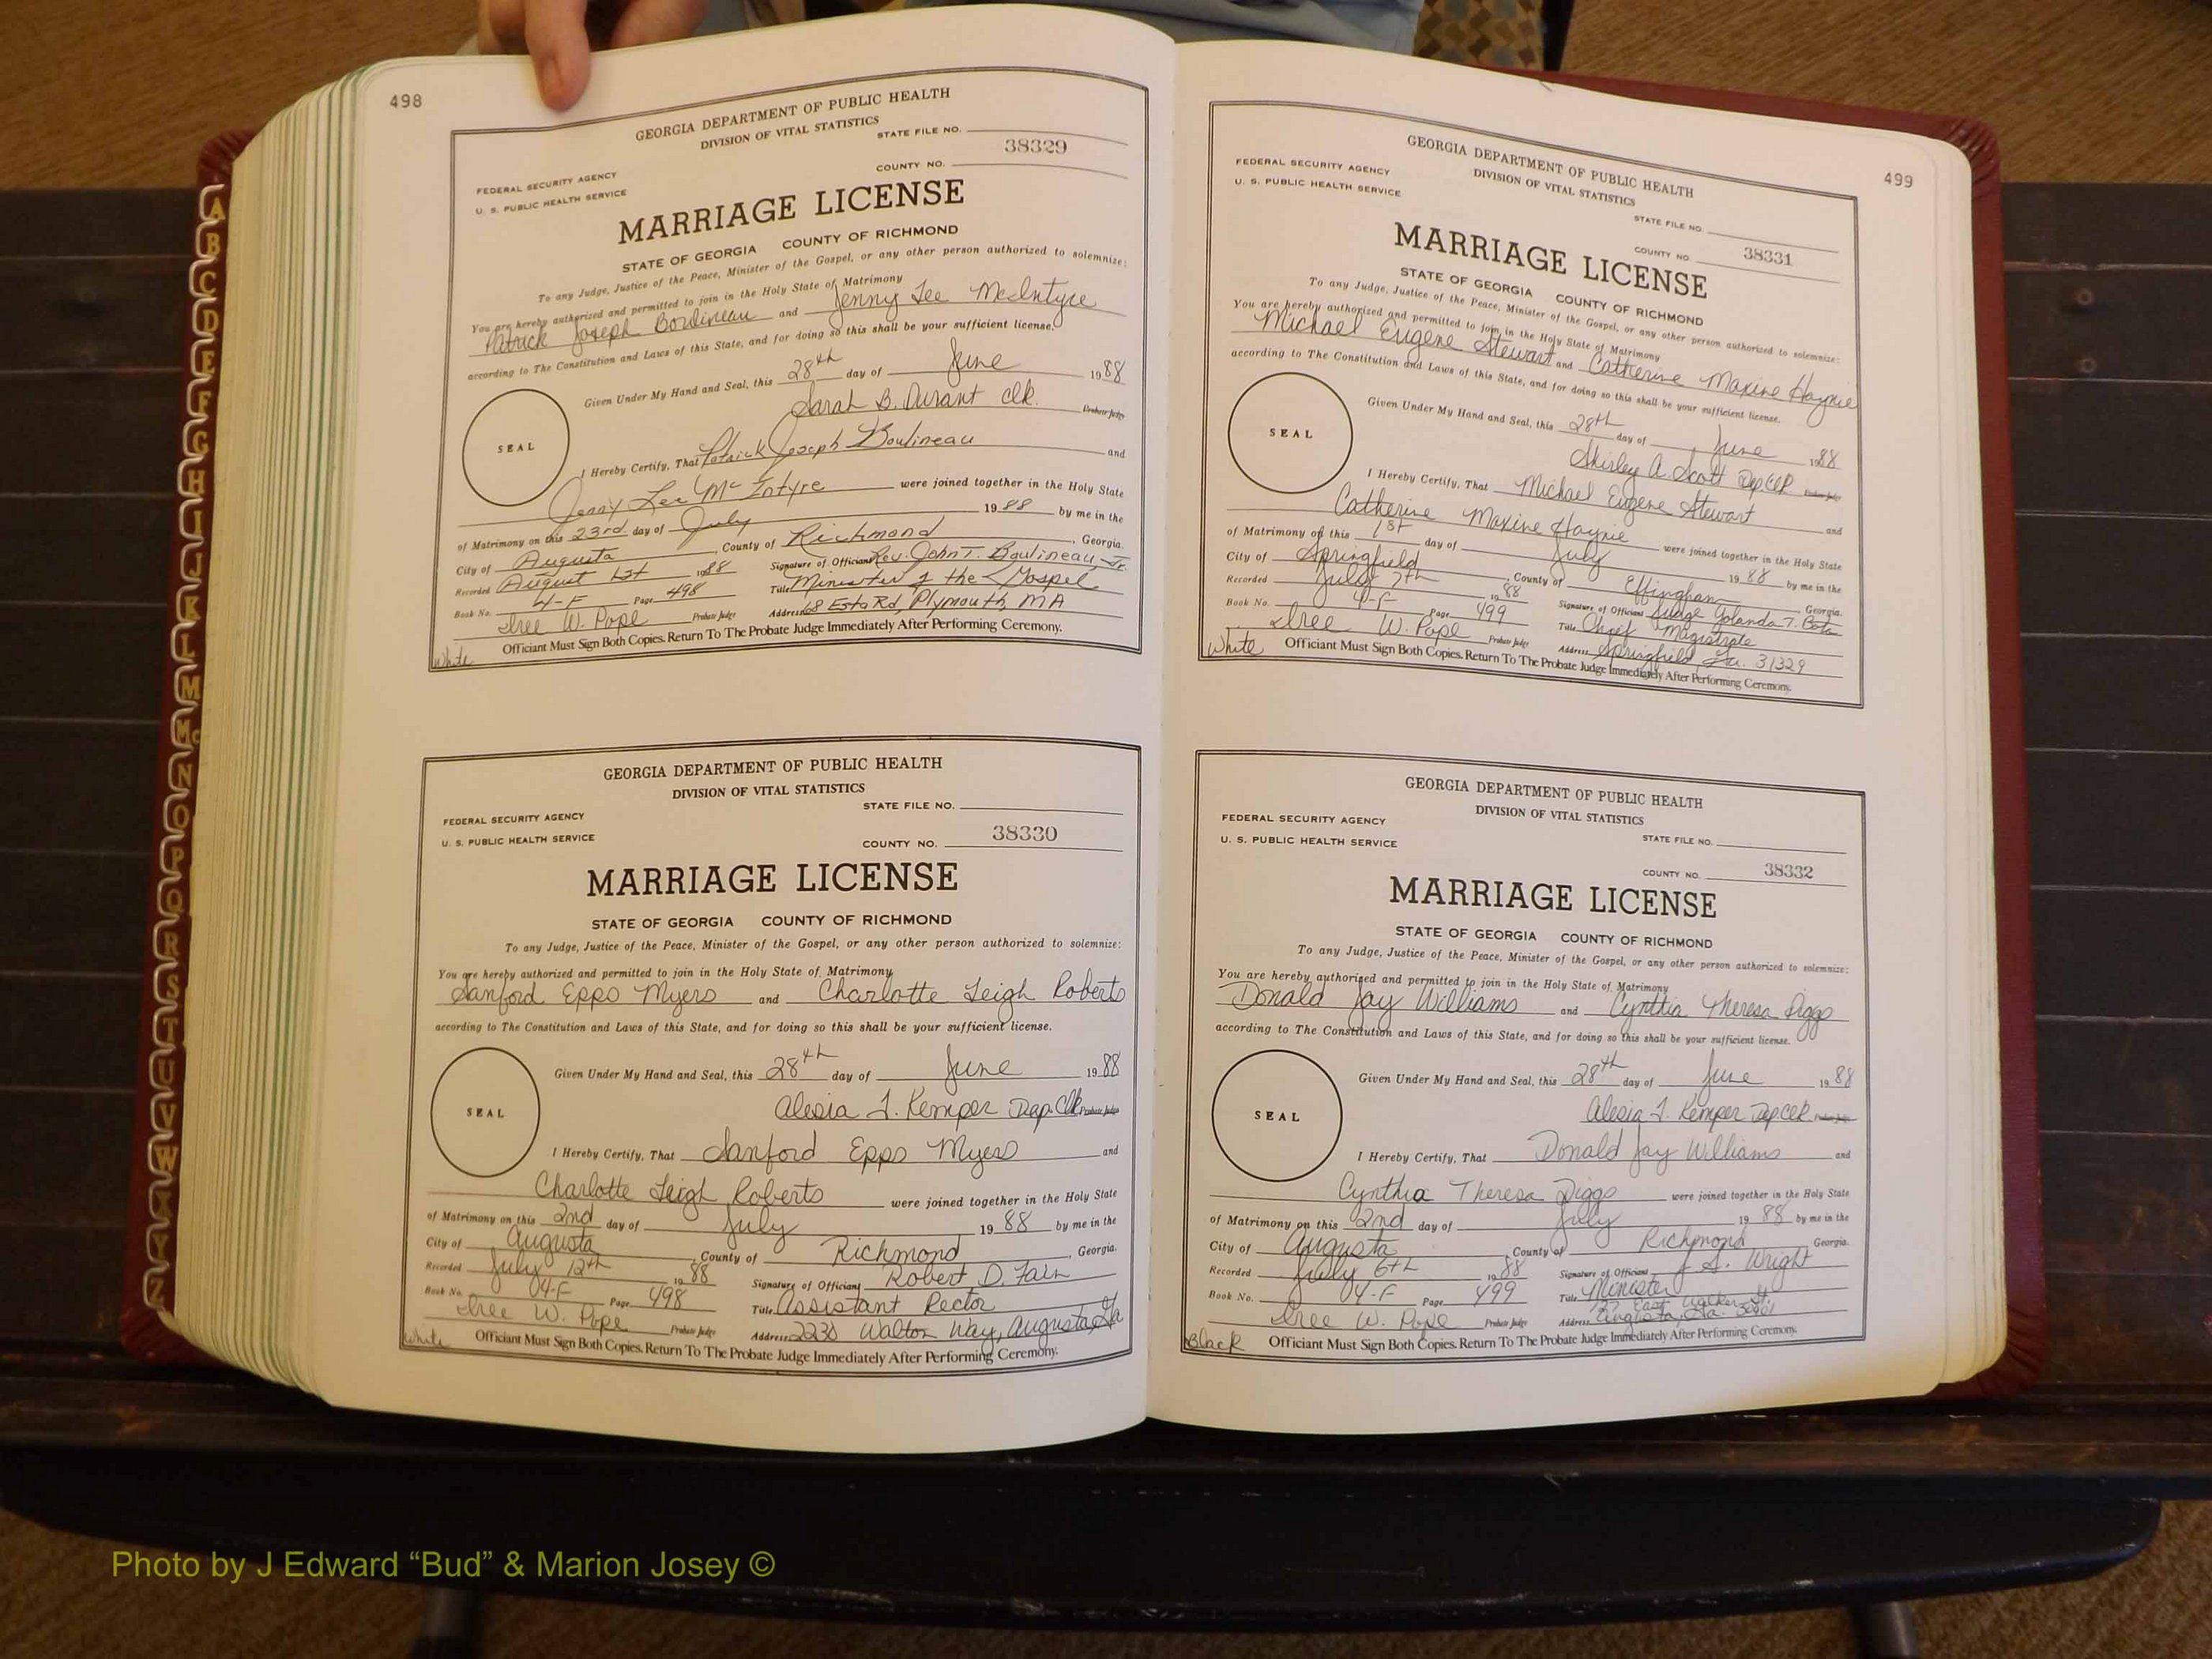 498
GEORGIA DEPARTMENT OF PUBLIC HEALTH
DIVISION OF VITAL STATISTICS
STATE FILE NO.
38329
COUNTY NO.
FEDERAL SECURITY AGENCY
U. S. PUBLIC HEALTH SERVICE
MARRIAGE LICENSE
STATE OF GEORGIA COUNTY OF RICHMOND
To any Judge, Justice of the Peace, Minister of the Gospel, or any other person authorized to solemnize:
You are hereby authorized and permitted to join in the Holy State of Matrimony
Patrick Joseph and Jenny Lee McIntyre
according to The Constitution and Laws of this State, and for doing so this shall be your sufficient license.
Given Under My Hand and Seal, this 28th day of June 1988
Sarah B. Durant Clk. Probate Judge
SEAL
I Hereby Certify, That Patrick Joseph Boulineau and
Jenny Lee McIntyre were joined together in the Holy State
of Matrimony on this 23rd day of July 1988 by me in the
City of Augusta, County of Richmond, Georgia.
Recorded August 1st 1988 Signature of Officiant Rev. John T. Boulineau, Jr.
Book No. 4-F Page 498 Title Minister of the Gospel
W. Pope Probate Judge Address 68 Esta Rd, Plymouth, MA
White Officiant Must Sign Both Copies. Return To The Probate Judge Immediately After Performing Ceremony.
GEORGIA DEPARTMENT OF PUBLIC HEALTH
DIVISION OF VITAL STATISTICS
STATE FILE NO.
FEDERAL SECURITY AGENCY
U. S. PUBLIC HEALTH SERVICE
COUNTY NO. 38330
MARRIAGE LICENSE
STATE OF GEORGIA COUNTY OF RICHMOND
To any Judge, Justice of the Peace, Minister of the Gospel, or any other person authorized to solemnize:
You are hereby authorized and permitted to join in the Holy State of Matrimony
Sanford Epps Myers and Charlotte Leigh Roberts
according to The Constitution and Laws of this State, and for doing so this shall be your sufficient license.
Given Under My Hand and Seal, this 28th day of June 1988
Alesia J. Kemper Dep. Clk Probate Judge
SEAL
I Hereby Certify, That Sanford Epps Myers and
Charlotte Leigh Roberts were joined together in the Holy State
of Matrimony on this 2nd day of July 1988 by me in the
City of Augusta, County of Richmond, Georgia.
Recorded July 12th 1988 Signature of Officiant Robert D. Fain
Book No. 04-F Page 498 Title Assistant Rector
W. Pope Probate Judge Address 2230 Walton Way, Augusta, Ga
White Officiant Must Sign Both Copies. Return To The Probate Judge Immediately After Performing Ceremony.
499
GEORGIA DEPARTMENT OF PUBLIC HEALTH
DIVISION OF VITAL STATISTICS
FEDERAL SECURITY AGENCY
U. S. PUBLIC HEALTH SERVICE
STATE FILE NO.
COUNTY NO. 38331
MARRIAGE LICENSE
STATE OF GEORGIA COUNTY OF RICHMOND
To any Judge, Justice of the Peace, Minister of the Gospel, or any other person authorized to solemnize:
You are hereby authorized and permitted to join in the Holy State of Matrimony
Michael Eugene Stewart and Catherine Maxine Haynie
according to The Constitution and Laws of this State, and for doing so this shall be your sufficient license.
Given Under My Hand and Seal, this 28th day of June 1988
Shirley A. Scott Dep Clk Probate Judge
SEAL
I Hereby Certify, That Michael Eugene Stewart and
Catherine Maxine Haynie were joined together in the Holy State
of Matrimony on this 1st day of July 1988 by me in the
City of Springfield, County of Effingham Georgia.
Recorded July 7th 88 Signature of Officiant Judge Yolanda T.
Book No. 4-F Page 499 Title Chief Magistrate
W. Pope Probate Judge Address Springfield, Ga. 31329
White Officiant Must Sign Both Copies. Return To The Probate Judge Immediately After Performing Ceremony.
GEORGIA DEPARTMENT OF PUBLIC HEALTH
DIVISION OF VITAL STATISTICS
FEDERAL SECURITY AGENCY
U. S. PUBLIC HEALTH SERVICE
STATE FILE NO.
COUNTY NO. 38332
MARRIAGE LICENSE
STATE OF GEORGIA COUNTY OF RICHMOND
To any Judge, Justice of the Peace, Minister of the Gospel, or any other person authorized to solemnize:
You are hereby authorized and permitted to join in the Holy State of Matrimony
Donald Jay Williams and Cynthia Theresa Diggs
according to The Constitution and Laws of this State, and for doing so this shall be your sufficient license.
Given Under My Hand and Seal, this 28th day of June 1988
Alesia J. Kemper Dep Clk Probate Judge
SEAL
I Hereby Certify, That Donald Jay Williams and
Cynthia Theresa Diggs were joined together in the Holy State
of Matrimony on this 2nd day of July 1988 by me in the
City of Augusta, County of Richmond Georgia.
Recorded July 6th 1988 Signature of Officiant J. S. Wright
Book No. 04-F Page 499 Title Minister
W. Pope Probate Judge Address East Walker St. Augusta, Ga. 30901
Black Officiant Must Sign Both Copies. Return To The Probate Judge Immediately After Performing Ceremony.
A
B
C
D
E
F
G
H
I
J
K
L
M
Mc
N
O
P
Q
R
S
T
U
V
W
X
Y
Z
Photo by J Edward “Bud” & Marion Josey ©